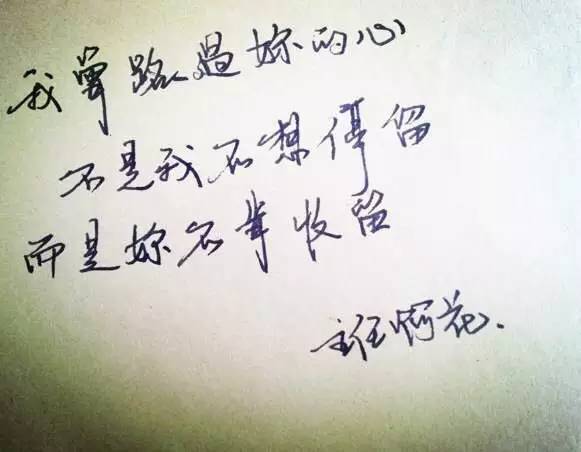 我曾路过妳的心
不是我不想停留
而是妳不肯收留
主任啊花.